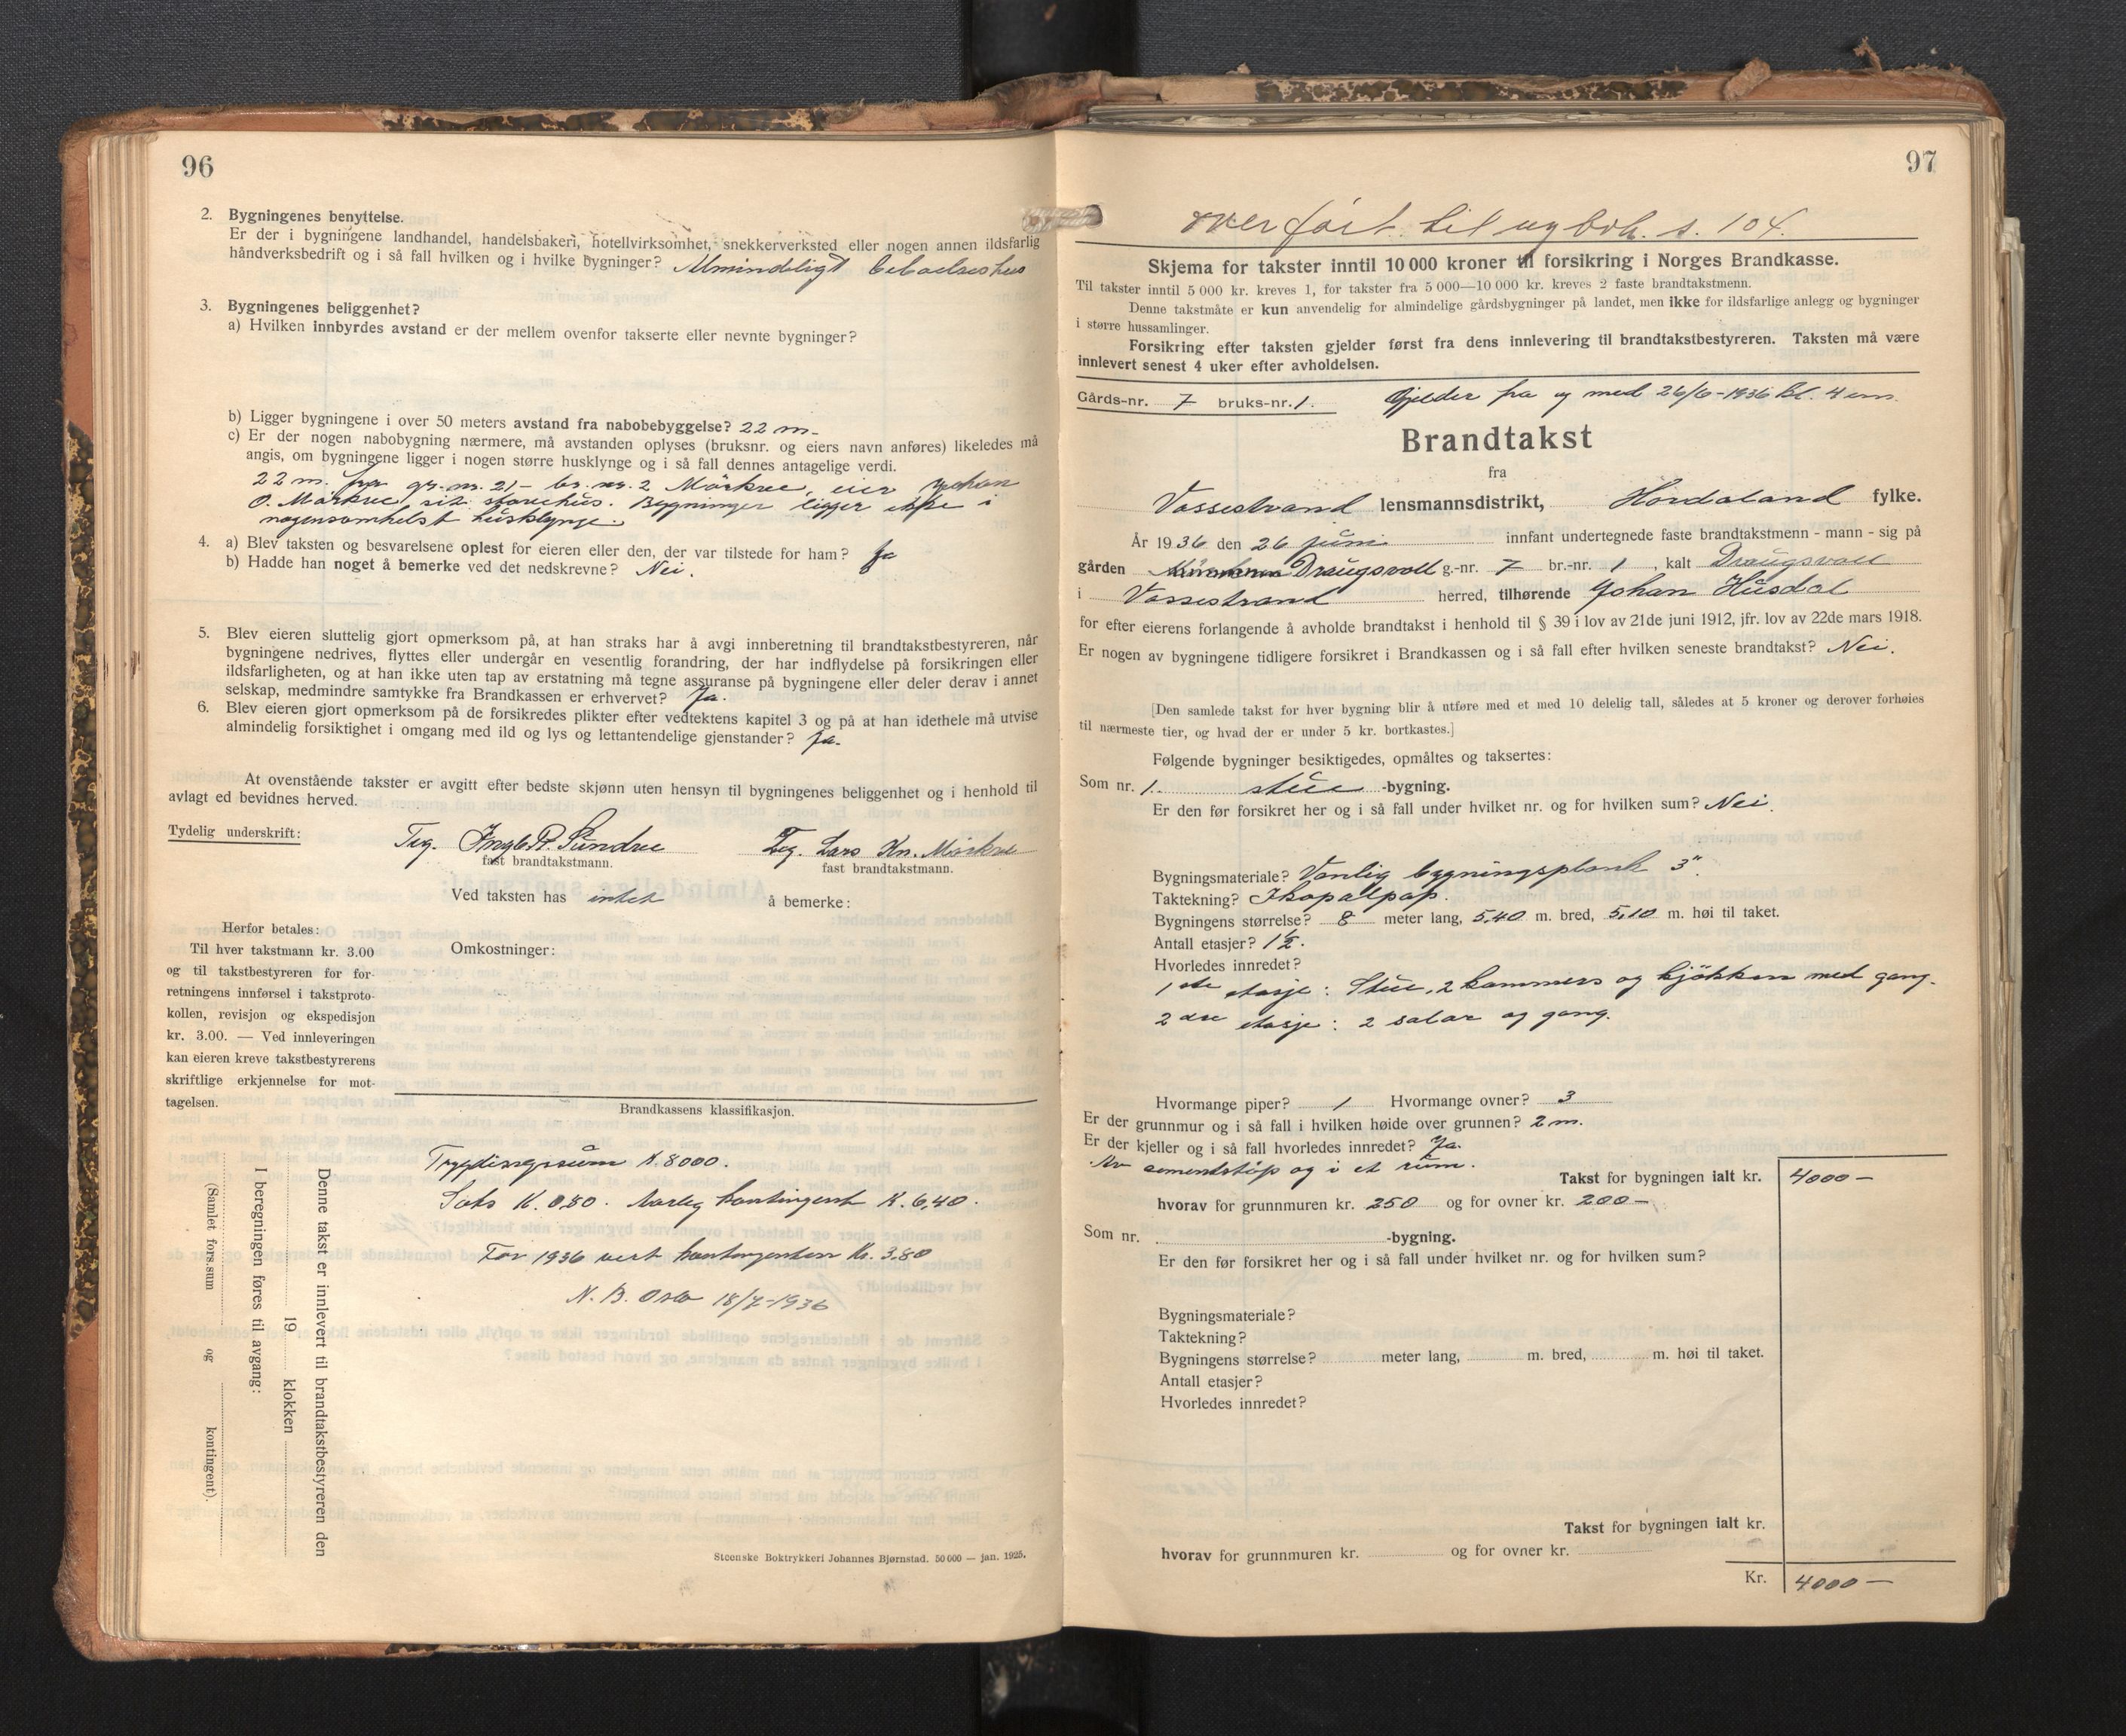 96
2. Bygningenes benyttelse.
Er der i bygningene landhandel, handelsbakeri, hotellvirksomhet, snekkerverksted eller nogen annen ildsfarlig
håndverksbedrift og i så fall hvilken og i hvilke bygninger? Almindeligt beboelseshus
3. Bygningenes beliggenhet?
a) Hvilken innbyrdes avstand er der mellem ovenfor takserte eller nevnte bygninger?
b) Ligger bygningene i over 50 meters avstand fra nabobebyggelse? 22 m.
c) Er der nogen nabobygning nærmere, må avstanden oplyses (bruksnr. og eiers navn anføres) likeledes må
angis, om bygningene ligger i nogen større husklynge og i så fall dennes antagelige verdi.
22 m. fra gr. nr. 21 - br. nr. 2 Mørkve, eier Johan
O. Mørkve sit storehus. Bygninger ligger ikke i
nogensomhelst husklynge.
4. a) Blev taksten og besvarelsene oplest for eieren eller den, der var tilstede for ham? Ja
b) Hadde han noget å bemerke ved det nedskrevne? Nei.
5. Blev eieren sluttelig gjort opmerksom på, at han straks har å avgi innberetning til brandtakstbestyreren, når
bygningene nedrives, flyttes eller undergår en vesentlig forandring, der har indflydelse på forsikringen eller
ildsfarligheten, og at han ikke uten tap av erstatning må tegne assuranse på bygningene eller deler derav i annet
selskap, medmindre samtykke fra Brandkassen er erhvervet? Ja.
6. Blev eieren gjort opmerksom på de forsikredes plikter efter vedtektens kapitel 3 og på at han idethele må utvise
almindelig forsiktighet i omgang med ild og lys og lettantendelige gjenstander? Ja.
At ovenstående takster er avgitt efter bedste skjønn uten hensyn til bygningenes beliggenhet og i henhold til
avlagt ed bevidnes herved.
Tydelig underskrift: Teg. Ingb. P. Sundve Teg. Lars Kn. Mørkve
fast brandtakstmann. fast brandtakstmann.
Ved taksten has intet å bemerke:
Herfor betales:
Til hver takstmann kr. 3.00
og til takstbestyreren for for-
retningens innførsel i takstproto-
kollen, revisjon og ekspedisjon
kr. 3.00. — Ved innleveringen
kan eieren kreve takstbestyrerens
skriftlige erkjennelse for mot-
tagelsen.
Omkostninger:
Brandkassens klassifikasjon.
Trygdingssum K. 8000.
Sats K. 0,80. Aarleg kontingent K. 6,40.
For 1936 vert kontingenten Kr. 3.80
N. B. Oslo 18/7-1936
Denne takst er innlevert til brandtakstbestyreren den
19 klokken
I beregningen føres til avgang:
(Samlet fors.sum og kontingent).
Steenske Boktrykkeri Johannes Bjørnstad. 50 000 — jan. 1925.
97
overført til ny bok. s. 104.
Skjema for takster inntil 10 000 kroner til forsikring i Norges Brandkasse.
Til takster inntil 5 000 kr. kreves 1, for takster fra 5 000—10 000 kr. kreves 2 faste brandtakstmenn.
Denne takstmåte er kun anvendelig for almindelige gårdsbygninger på landet, men ikke for ildsfarlige anlegg og bygninger
i større hussamlinger.
Forsikring efter taksten gjelder først fra dens innlevering til brandtakstbestyreren. Taksten må være
innlevert senest 4 uker efter avholdelsen.
Gårds-nr. 7 bruks-nr. 1. Gjelder fra og med 26/6-1936 kl. 4 em.
Brandtakst
fra
Vossestrand lensmannsdistrikt, Hordaland fylke.
År 1936 den 26 juni innfant undertegnede faste brandtakstmenn - mann - sig på
gården Draugsvoll g.-nr. 7 br.-nr. 1, kalt Draugsvoll
i Vossestrand herred, tilhørende Johan Husdal
for efter eierens forlangende å avholde brandtakst i henhold til § 39 i lov av 21de juni 1912, jfr. lov av 22de mars 1918.
Er nogen av bygningene tidligere forsikret i Brandkassen og i så fall efter hvilken seneste brandtakst? Nei.
[Den samlede takst for hver bygning blir å utføre med et med 10 delelig tall, således at 5 kroner og derover forhøies
til nærmeste tier, og hvad der er under 5 kr. bortkastes.]
Følgende bygninger besiktigedes, opmåltes og taksertes:
Som nr. 1. stue -bygning.
Er den før forsikret her og i så fall under hvilket nr. og for hvilken sum? Nei.
Bygningsmateriale? Vanlig bygningsplank 3".
Taktekning? Ikopalpap.
Bygningens størrelse? 8 meter lang, 5,40 m. bred, 5,10 m. høi til taket.
Antall etasjer? 1½.
Hvorledes innredet?
1ste etasje: Stue, 2 kammers og kjøkken med gang.
2dre etasje: 2 salar og gang.
Hvormange piper? 1 Hvormange ovner? 3
Er der grunnmur og i så fall i hvilken høide over grunnen? 2 m.
Er der kjeller og i så fall hvorledes innredet? Ja.
Av sementstøp og i et rum.
Takst for bygningen ialt kr. 4000 —
hvorav for grunnmuren kr. 250 og for ovner kr. 200 —
Som nr. -bygning.
Er den før forsikret her og i så fall under hvilket nr. og for hvilken sum?
Bygningsmateriale?
Taktekning?
Bygningens størrelse? meter lang, m. bred, m. høi til taket.
Antall etasjer?
Hvorledes innredet?
Takst for bygningen ialt kr.
hvorav for grunnmuren kr. og for ovner kr.
Kr. 4000 —